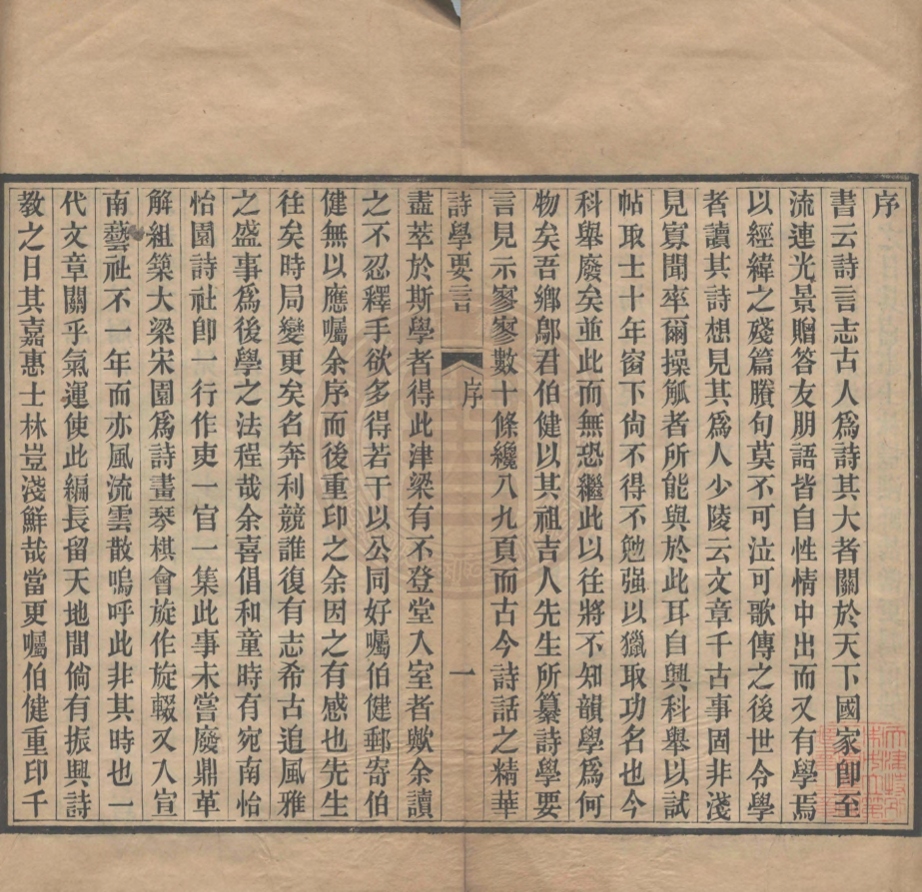 序
書云詩言志古人爲詩其大者關於天下國家卽至
流連光景贈答友朋語皆自性情中出而又有學焉
以經緯之殘篇賸句莫不可泣可歌傳之後世令學
者讀其詩想見其爲人少陵云文章千古事固非淺
見寡聞率爾操觚者所能與於此耳自興科舉以試
帖取士十年窗下尙不得不勉强以獵取功名也今
科舉廢矣並此而無恐繼此以往將不知韻學爲何
物矣吾鄉鄔君伯健以其祖吉人先生所纂詩學要
言見示寥寥數十條纔八九頁而古今詩話之精華
詩學要言 序 一
盡萃於斯學者得此津梁有不登堂入室者歟余讀
之不忍釋手欲多得若干以公同好囑伯健郵寄伯
健無以應囑余序而後重印之余因之有感也先生
往矣時局變更矣名奔利競誰復有志希古追風雅
之盛事爲後學之法程哉余喜倡和童時有宛南怡
怡園詩社卽一行作吏一官一集此事未嘗廢鼎革
解組築大梁宋園爲詩畫琴棋會旋作旋輟又入宣
南藝社不一年而亦風流雲散嗚呼此非其時也一
代文章關乎氣運使此編長留天地間倘有振興詩
教之日其嘉惠士林豈淺鮮哉當更囑伯健重印千